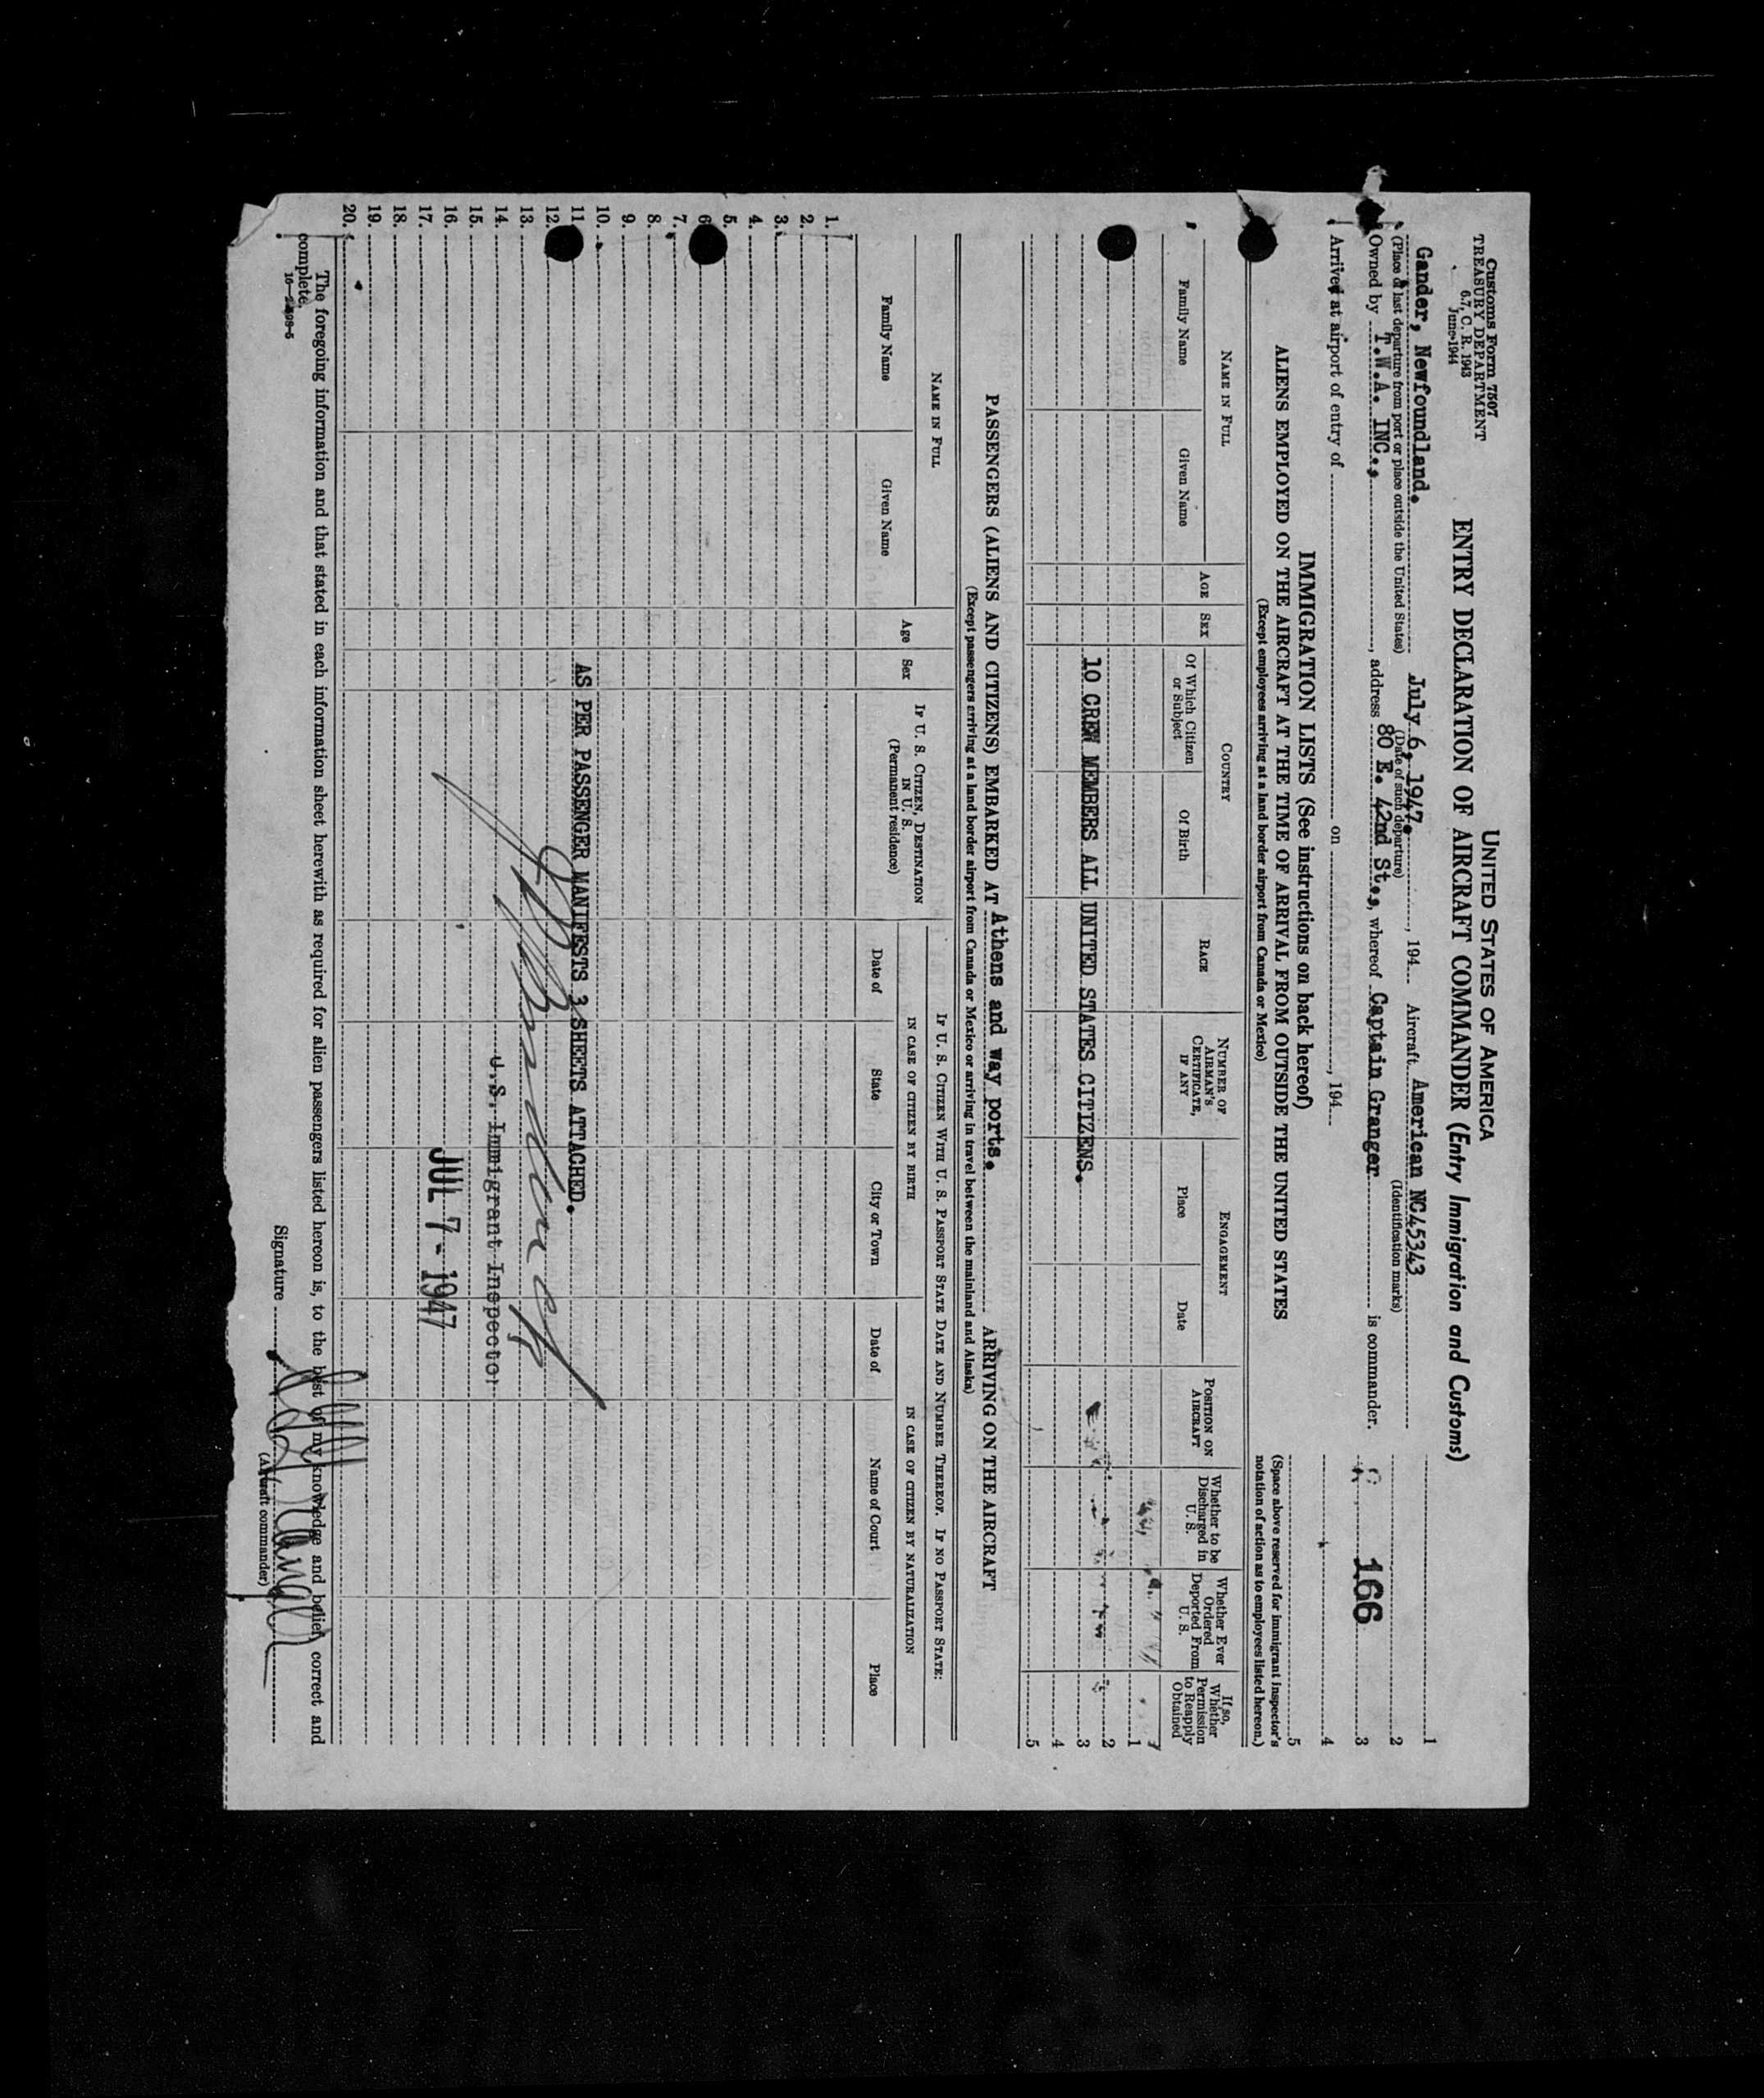 Customs Form 7507
TREASURY DEPARTMENT
6.7, C. R. 1943
June 1944
UNITED STATES OF AMERICA
ENTRY DECLARATION OF AIRCRAFT COMMANDER (Entry Immigration and Customs)
Gander, Newfoundland. July 6, 1947. , 194 Aircraft American NC45343
(Place of last departure from port or place outside the United States) (Date of such departure) (Identification marks)
Owned by T.W.A. INC., , address 80 E. 42nd St., , whereof Captain Granger is commander.
Arrived at airport of entry of on , 194
1
2
166 3
4
5
(Space above reserved for immigrant inspector's
notation of action as to employees listed hereon.)
IMMIGRATION LISTS (See instructions on back hereof)
ALIENS EMPLOYED ON THE AIRCRAFT AT THE TIME OF ARRIVAL FROM OUTSIDE THE UNITED STATES
(Except employees arriving at a land border airport from Canada or Mexico)
NAME IN FULL
Family Name
Given Name
AGE
SEX
COUNTRY
Of Which Citizen or Subject
Of Birth
RACE
NUMBER OF AIRMAN'S CERTIFICATE, IF ANY
ENGAGEMENT
Place
Date
POSITION ON AIRCRAFT
Whether to be Discharged in U. S.
Whether Ever Ordered Deported From U. S.
If so, Whether Permission to Reapply Obtained
1
2
10 CREW MEMBERS ALL UNITED STATES CITIZENS. 3
4
5
PASSENGERS (ALIENS AND CITIZENS) EMBARKED AT Athens and way ports. ARRIVING ON THE AIRCRAFT
(Except passengers arriving at a land border airport from Canada or Mexico or arriving in travel between the mainland and Alaska)
NAME IN FULL
Family Name
Given Name
Age
Sex
IF U. S. CITIZEN, DESTINATION IN U. S.
(Permanent residence)
IF U. S. CITIZEN WITH U. S. PASSPORT STATE DATE AND NUMBER THEREOF. IF NO PASSPORT STATE:
IN CASE OF CITIZEN BY BIRTH
IN CASE OF CITIZEN BY NATURALIZATION
Date of
State
City or Town
Date of
Name of Court
Place
1.
2.
3.
4.
5.
6
7.
8.
9.
10.
11 AS PER PASSENGER MANIFESTS 3 SHEETS ATTACHED.
12.
13.
14. U.S. Immigrant Inspector
15.
16. JUL 7 - 1947
17.
18.
19.
20.
The foregoing information and that stated in each information sheet herewith as required for alien passengers listed hereon is, to the best of my knowledge and belief, correct and
complete.
Signature
(Aircraft commander)